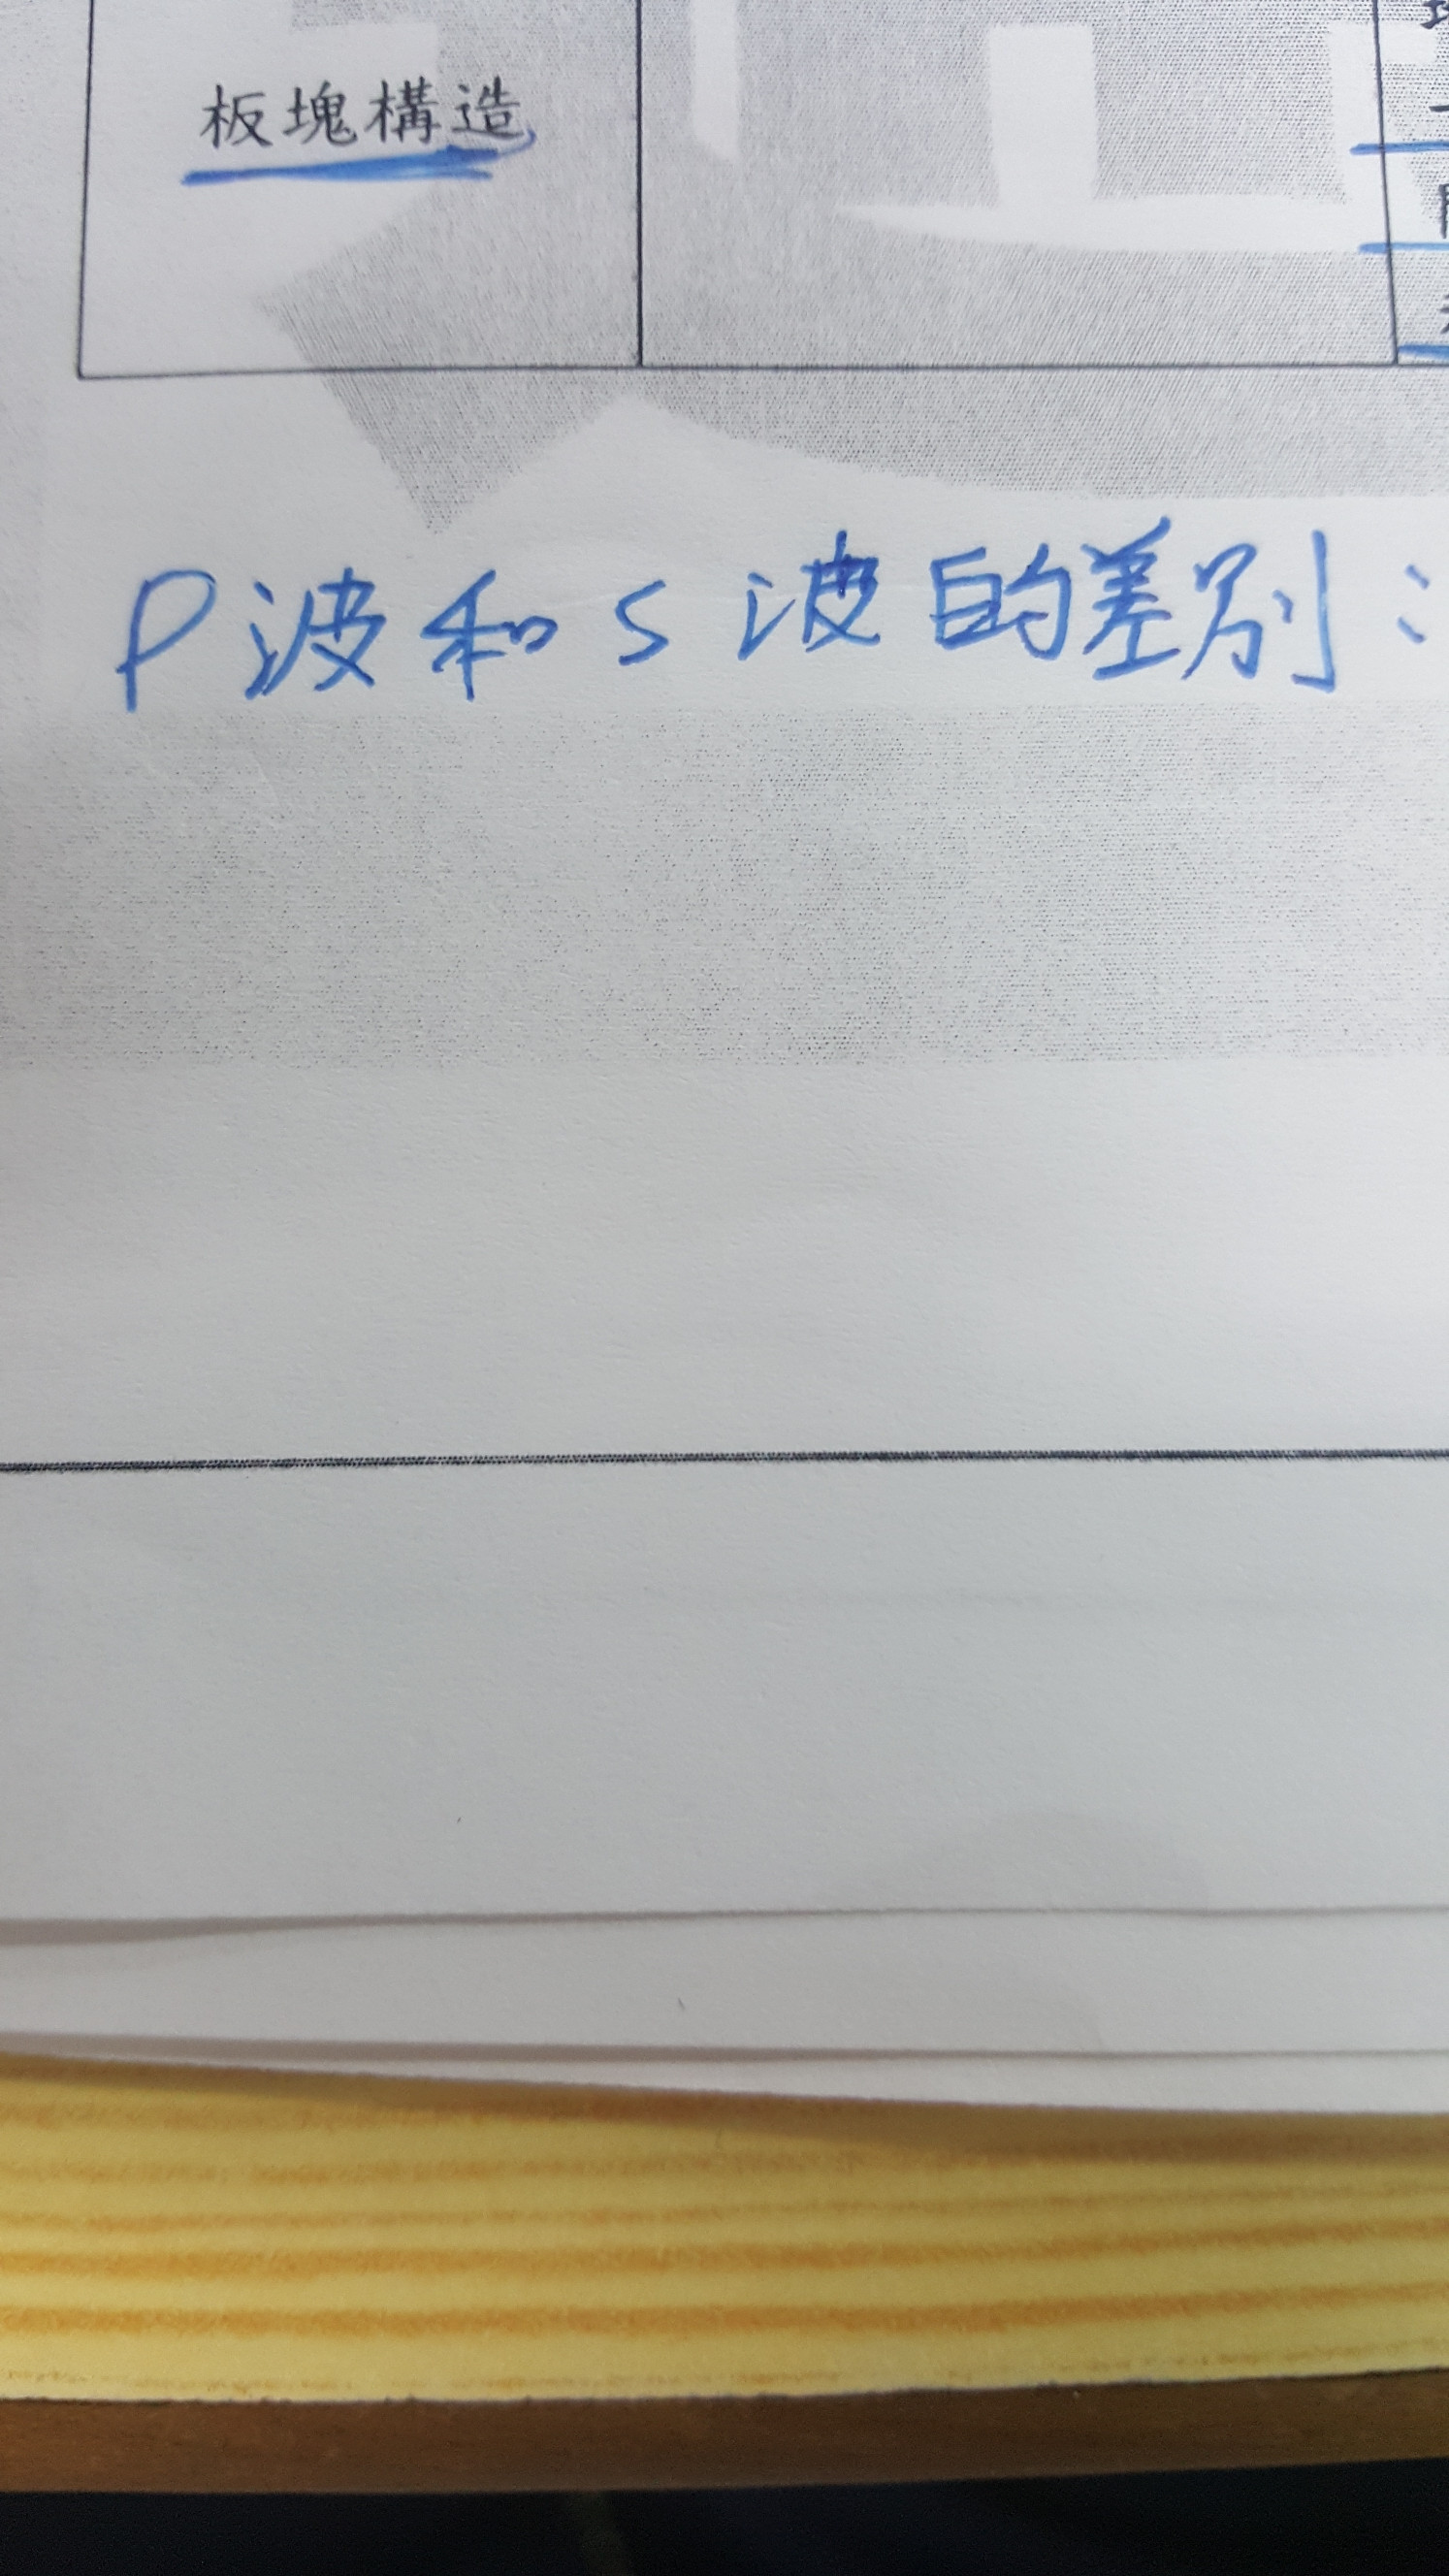 板塊構造
P波和S波的差別：